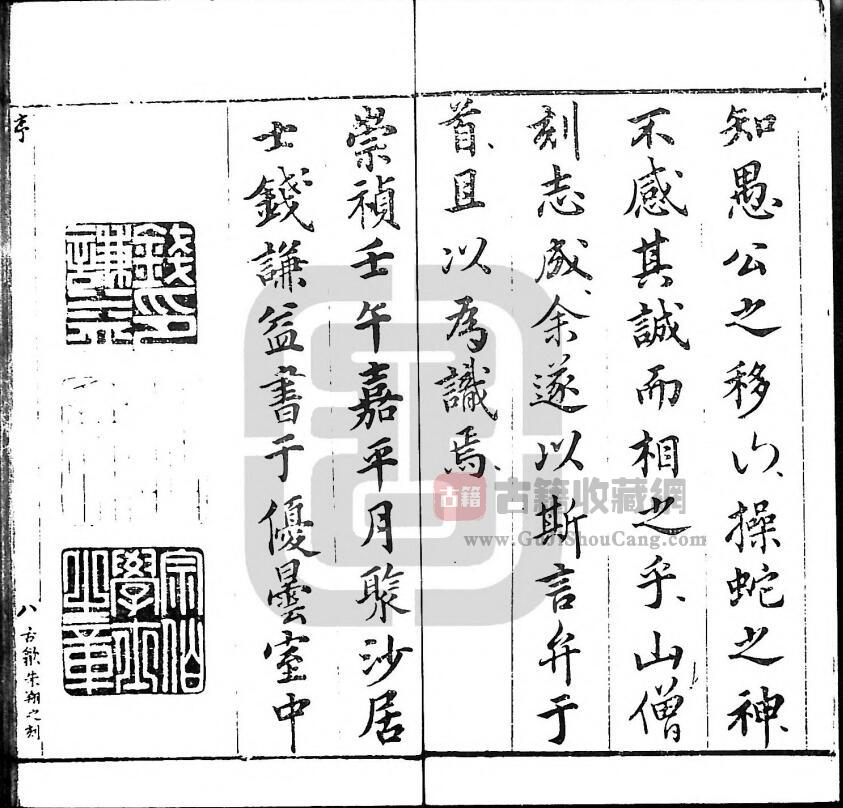 知愚公之移山、操蛇之神、
不感其誠而相之乎、山僧
刻志成、余遂以斯言弁于
首、且以為識焉、
崇禎壬午嘉平月聚沙居
士錢謙益書于優曇室中
序
錢謙益印
八
古歙朱翔之刻
古籍 古籍收藏網
www.GuJiShouCang.com